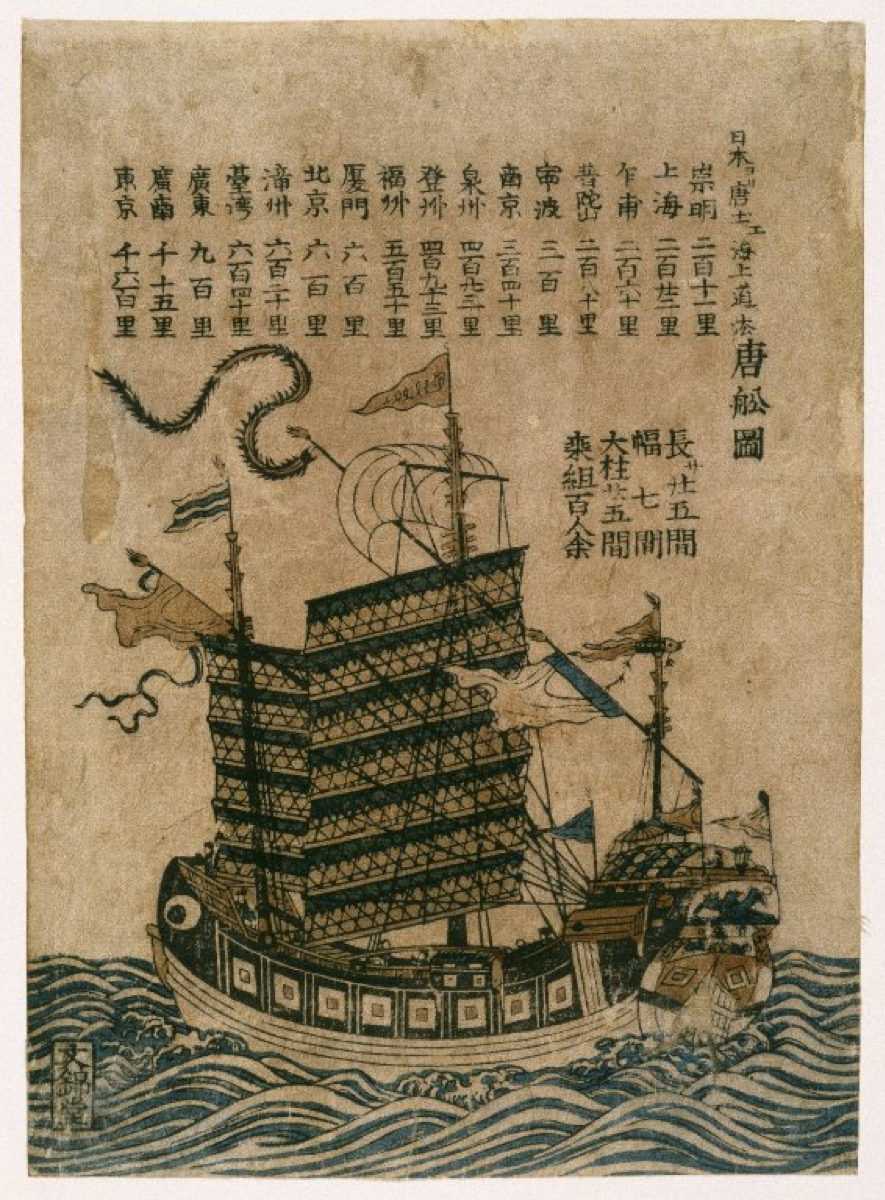 日本ヨリ唐土エ海上道法
唐舩圖
崇明 二百十一里
上海 二百廿二里
乍甫 二百六十里
普陀山 二百八十里
寧波 三百里
南京 三百四十里
泉州 四百九三里
登州 四百九十三里
福州 五百五十里
厦門 六百里
北京 六百里
漳州 六百二十里
臺湾 六百四十里
廣東 九百里
廣南 千十五里
東京 千六百里
長サ廿五間
幅七間
大柱廿五間
乗組百人余
文錦堂